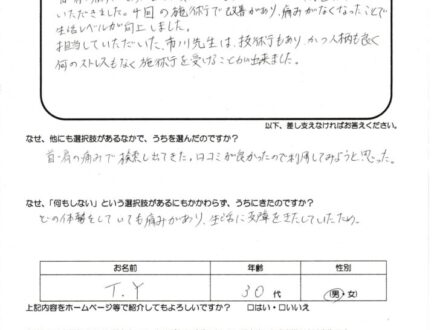 いただきました。4回の施術で改善があり、痛みがなくなったことで
生活レベルが向上しました。
担当していただいた、市川先生は、技術もあり、かつ人柄も良く
何のストレスもなく施術を受けることが出来ました。
以下、差し支えなければお答えください。
なぜ、他にも選択肢があるなかで、うちを選んだのですか？
首・肩の痛みで検索し出てきた。口コミが良かったので利用してみようと思った。
なぜ、「何もしない」という選択肢があるにもかかわらず、うちにきたのですか？
どの体勢をしていても痛みがあり、生活に支障をきたしていたため。
お名前 年齢 性別
T.Y 30代 男・女
上記内容をホームページ等で紹介してもよろしいですか？ □はい・□いいえ